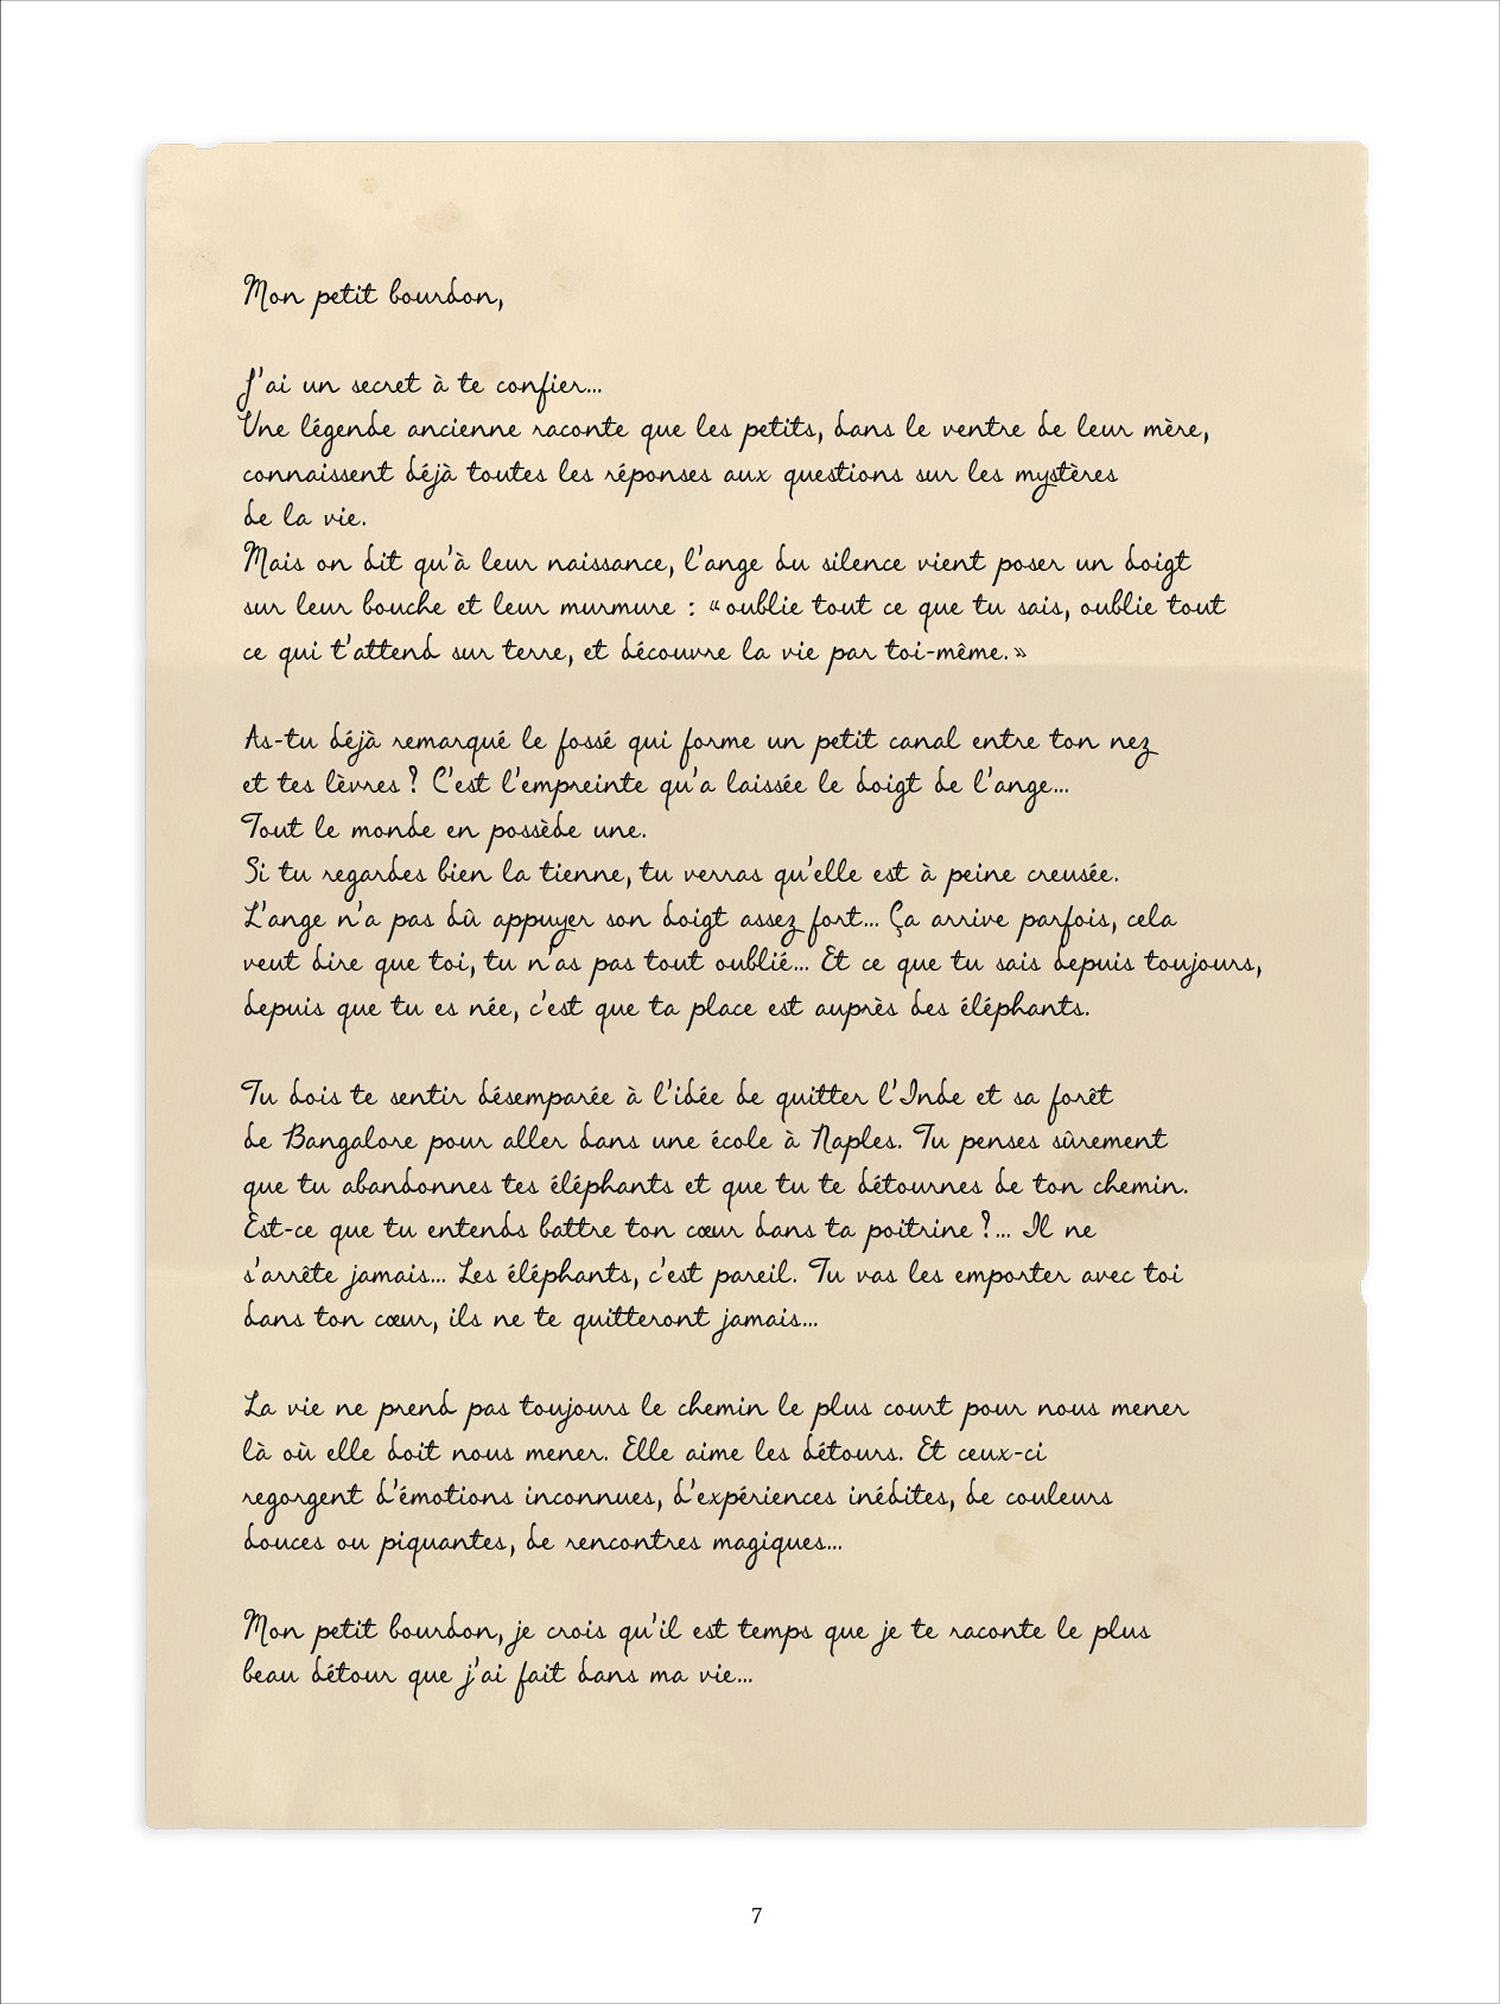 Mon petit bourdon,
J'ai un secret à te confier...
Une légende ancienne raconte que les petits, dans le ventre de leur mère,
connaissent déjà toutes les réponses aux questions sur les mystères
de la vie.
Mais on dit qu'à leur naissance, l'ange du silence vient poser un doigt
sur leur bouche et leur murmure : «oublie tout ce que tu sais, oublie tout
ce qui t'attend sur terre, et découvre la vie par toi-même.»
As-tu déjà remarqué le fossé qui forme un petit canal entre ton nez
et tes lèvres ? C'est l'empreinte qu'a laissée le doigt de l'ange...
Tout le monde en possède une.
Si tu regardes bien la tienne, tu verras qu'elle est à peine creusée.
L'ange n'a pas dû appuyer son doigt assez fort... Ça arrive parfois, cela
veut dire que toi, tu n'as pas tout oublié... Et ce que tu sais depuis toujours,
depuis que tu es née, c'est que ta place est auprès des éléphants.
Tu dois te sentir désemparée à l'idée de quitter l'Inde et sa forêt
de Bangalore pour aller dans une école à Naples. Tu penses sûrement
que tu abandonnes tes éléphants et que tu te détournes de ton chemin.
Est-ce que tu entends battre ton cœur dans ta poitrine ?... Il ne
s'arrête jamais... Les éléphants, c'est pareil. Tu vas les emporter avec toi
dans ton cœur, ils ne te quitteront jamais...
La vie ne prend pas toujours le chemin le plus court pour nous mener
là où elle doit nous mener. Elle aime les détours. Et ceux-ci
regorgent d'émotions inconnues, d'expériences inédites, de couleurs
douces ou piquantes, de rencontres magiques...
Mon petit bourdon, je crois qu'il est temps que je te raconte le plus
beau détour que j'ai fait dans ma vie...
7